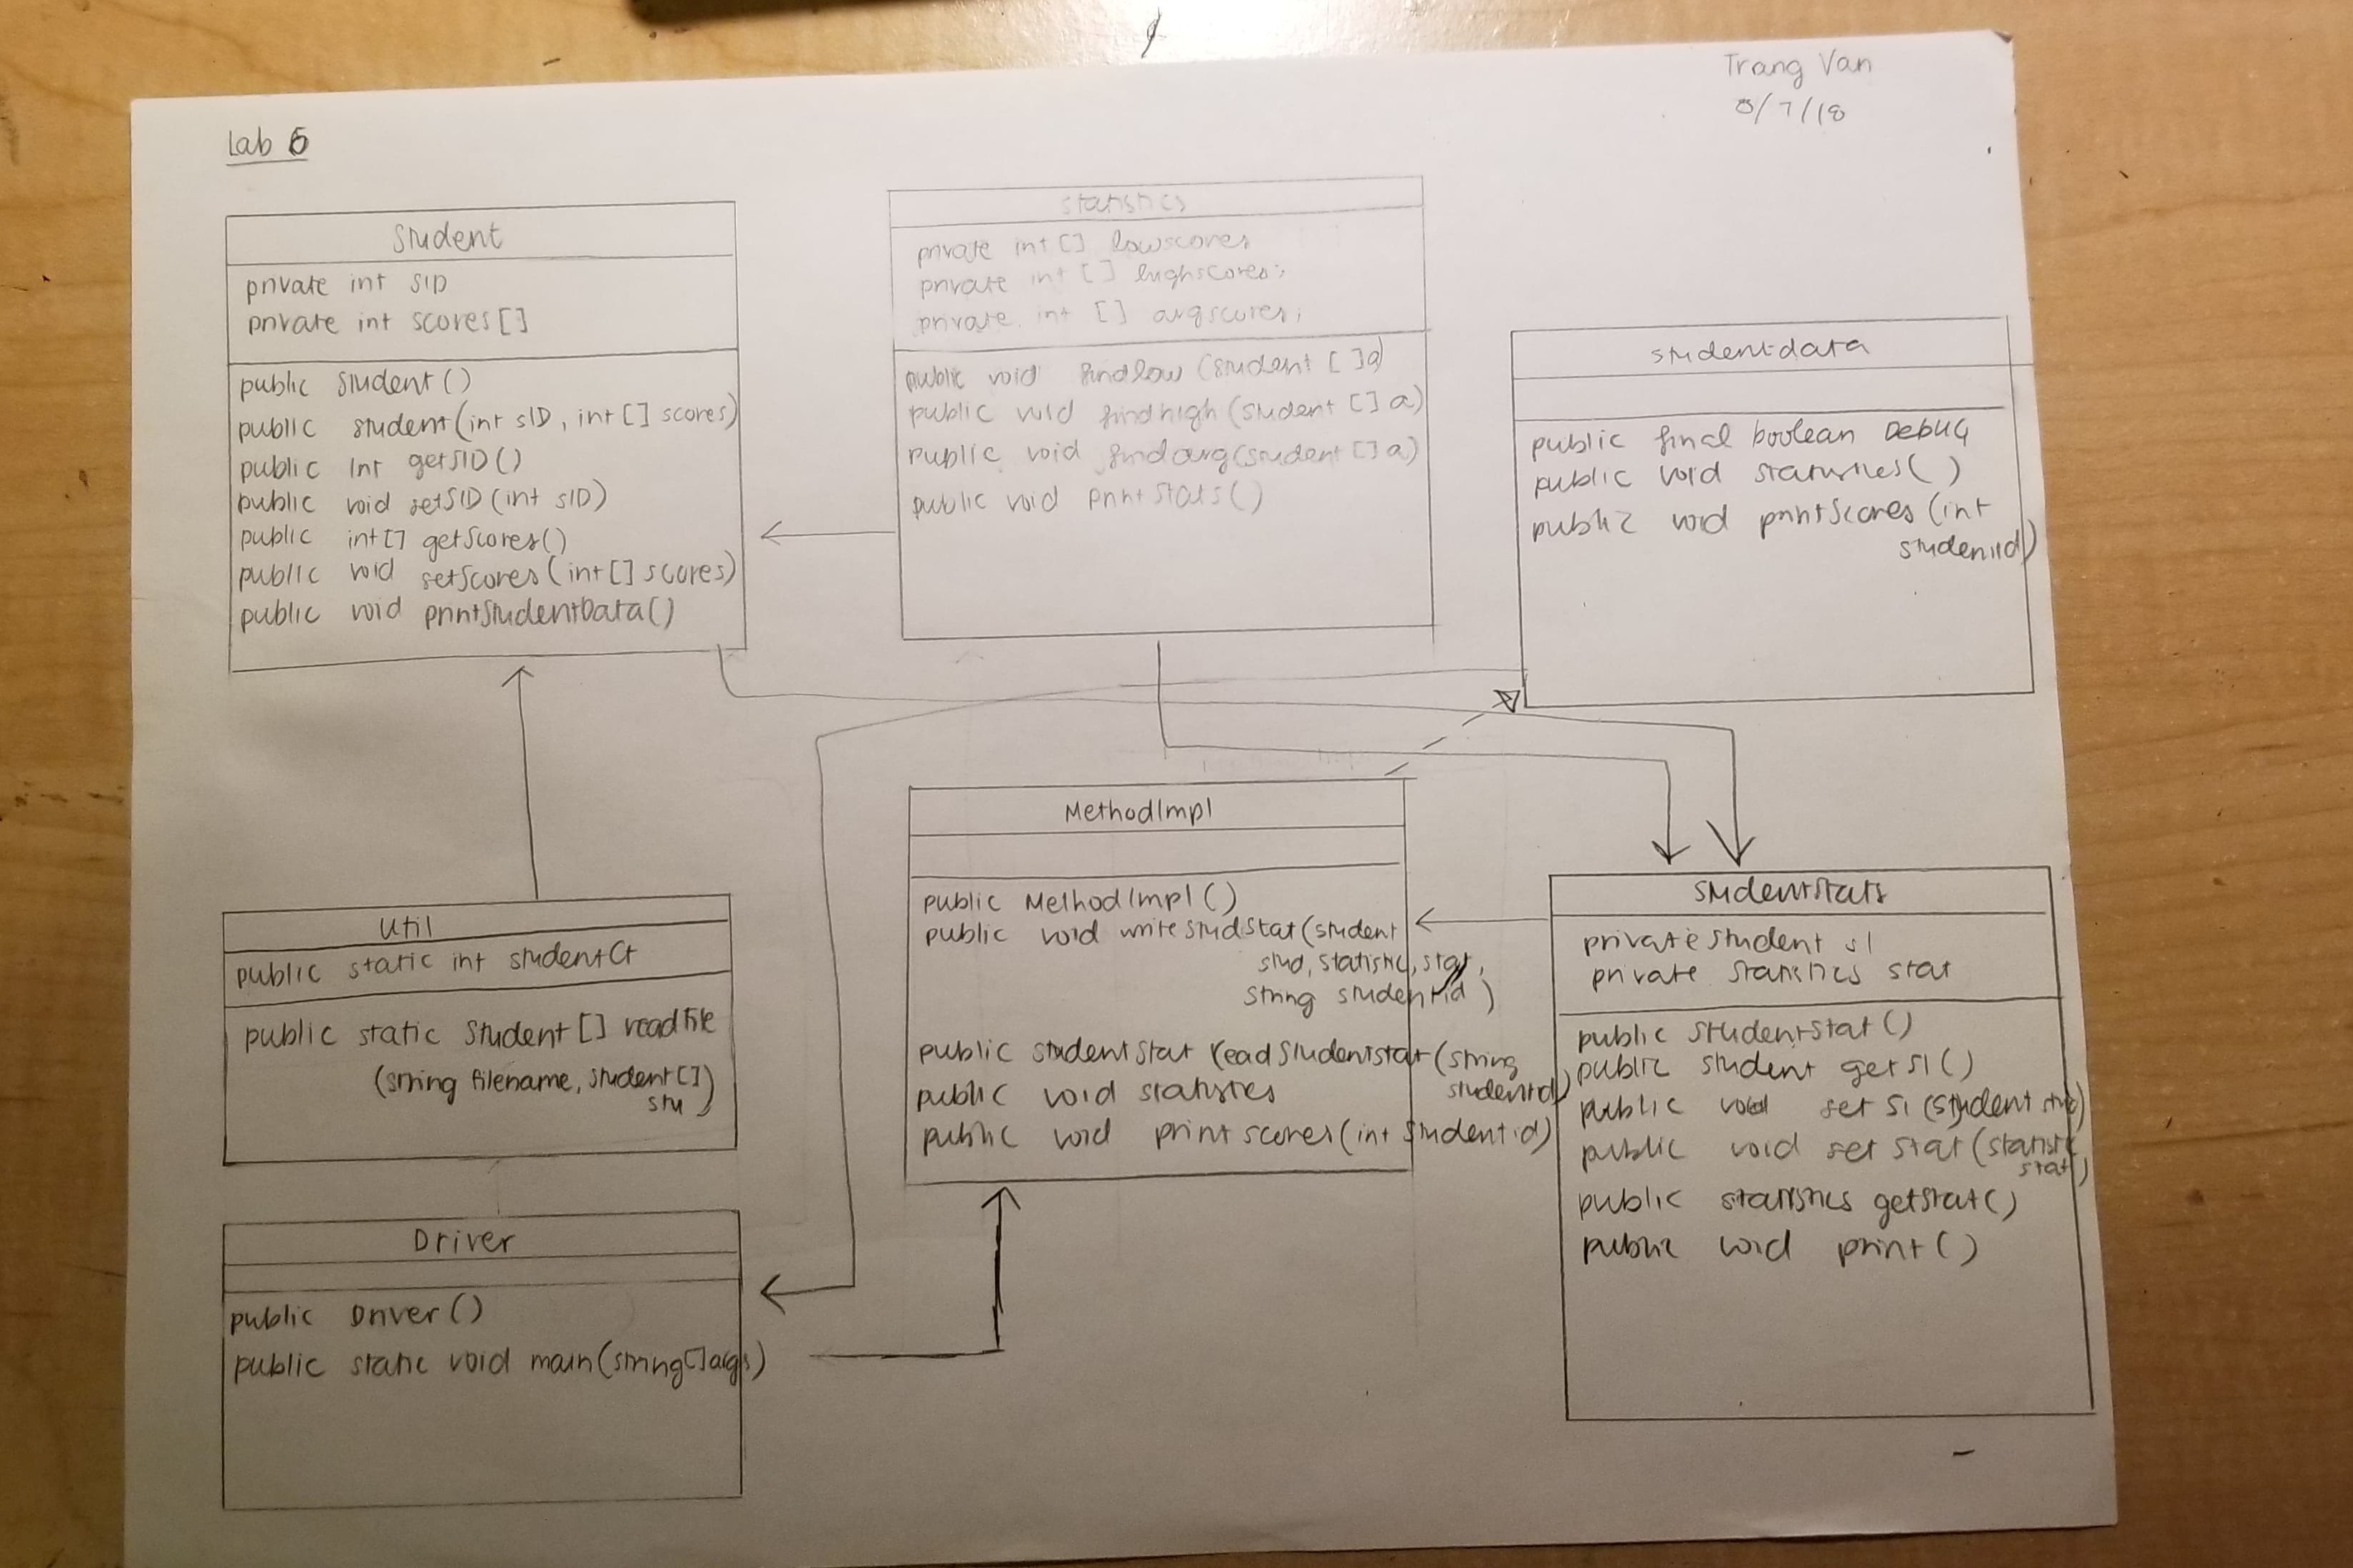 Trang Van
8/7/18
Lab 6
Student
private int SID
private int scores[]
public Student()
public student(int sID, int[] scores)
public Int getSID()
public void setSID(int sID)
public int[] getScores()
public void setScores(int[] scores)
public void printStudentData()
statistics
private int[] lowscores
private int[] highscores;
private int [] avgscores;
public void findlow (student []a)
public void findhigh(student [] a)
public void findavg(student []a)
public void printStats()
studentdata
public final boolean DEBUG
public void statistics()
public void printScores(int
studentid)
Util
public static int studentCt
public static Student[] readFile
(string filename, student[]
stu)
MethodImpl
public MethodImpl()
public void writeStudStat(student
stud, statistic, stat,
string studentid)
public studentStat readStudentstat(string
studentid)
public void statistics
public void print scores(int studentid)
studentstats
private student s1
private statistics stat
public studentstat()
public student get s1()
public void set s1(student stud)
public void set stat(statistic
stat)
public statistics getstat()
public void print()
Driver
public Driver()
public static void main(string[]args)